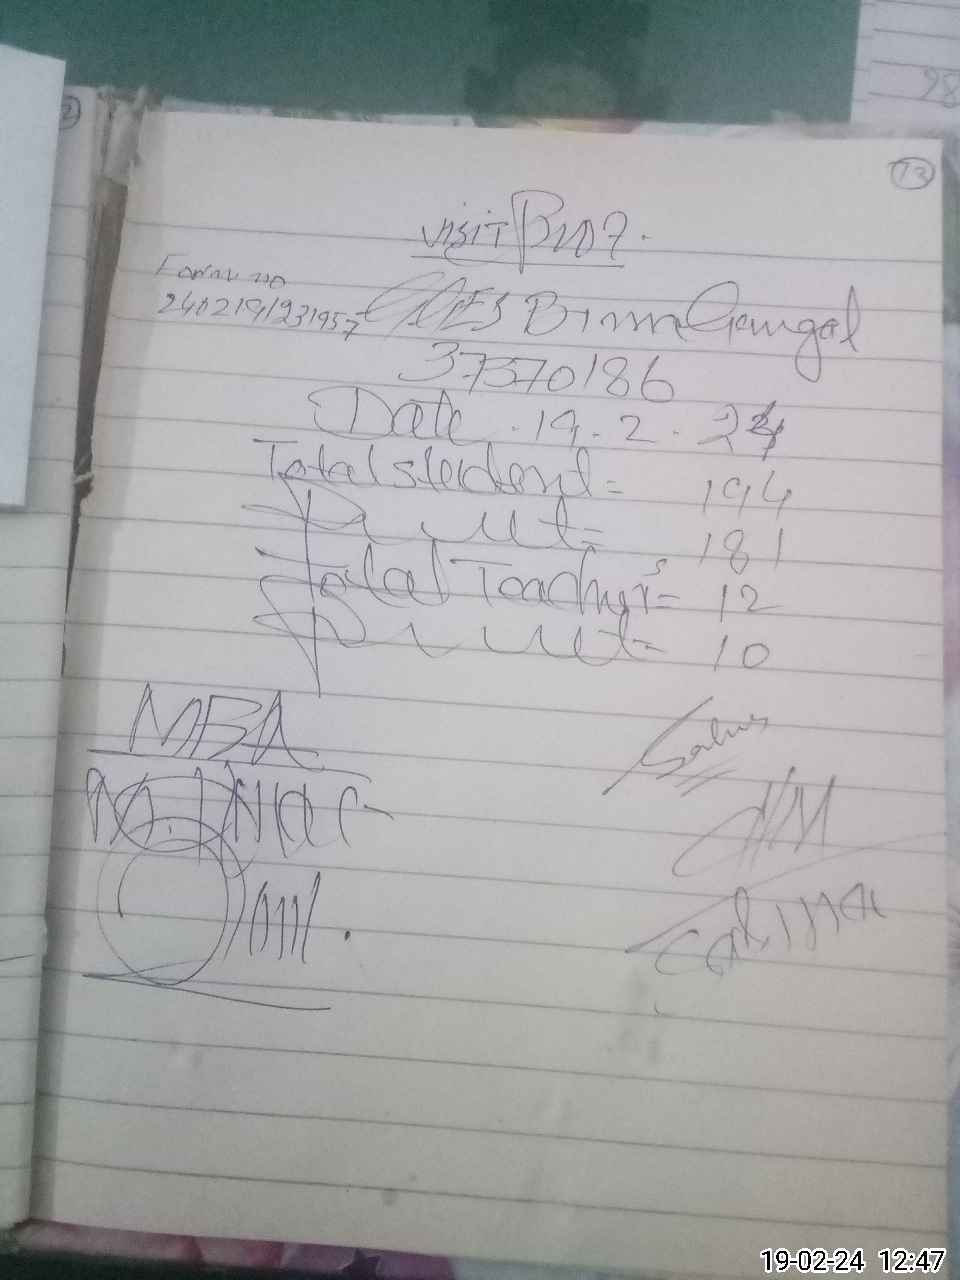 13
Visit Proof.
Form no
240219123957
GGES Bimm Gangal
37370186
Date . 19 . 2 . 24
Total student = 194
Present = 181
Total Teachers = 12
Present = 10
MBA
HM
Salma
28
19-02-24 12:47